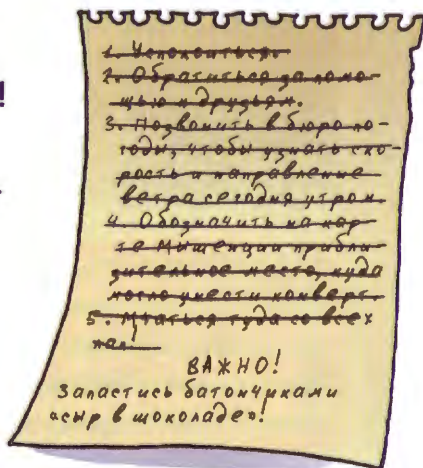 !
1. Успокоиться.
2. Обратиться за помо-
щью к друзьям.
3. Позвонить в бюро по-
годы, чтобы узнать ско-
рость и направление
ветра сегодня утром.
4. Обозначить на кар-
те Мышенции прибли-
зительное место, куда
могло унести конверт.
5. Мчаться туда со всех
лап!
ВАЖНО!
Запастись батончиками
«сыр в шоколаде»!